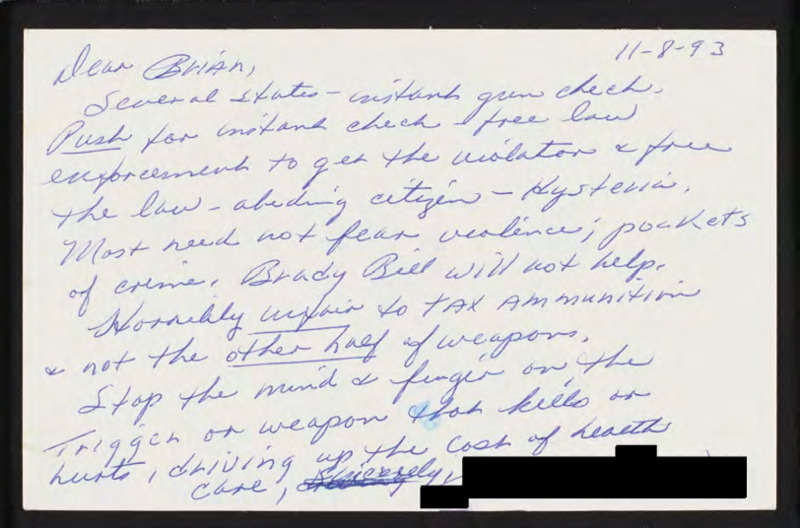 11-8-93
Dear Brian,
Several states - instant gun check.
Push for instant check - free law
enforcement to get the violator & free
the law-abiding citizen - Hysteria.
Most need not fear violence; pockets
of crime. Brady Bill will not help.
Horribly unfair to TAX AMMUNITION
& not the other half of weapons.
Stop the mind & finger on the
Trigger or weapon that kills or
hurts, driving up the cost of health
care, Sincerely